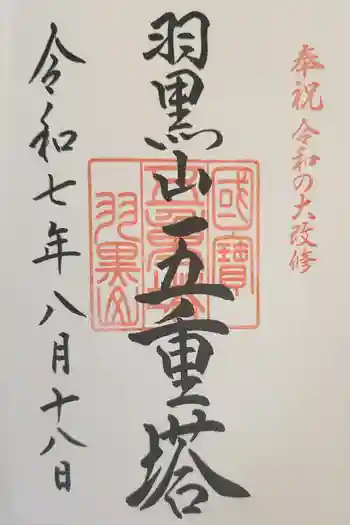 奉祝 令和の大改修
國寶
五重塔
羽黒山
羽黒山五重塔
令和七年八月十八日